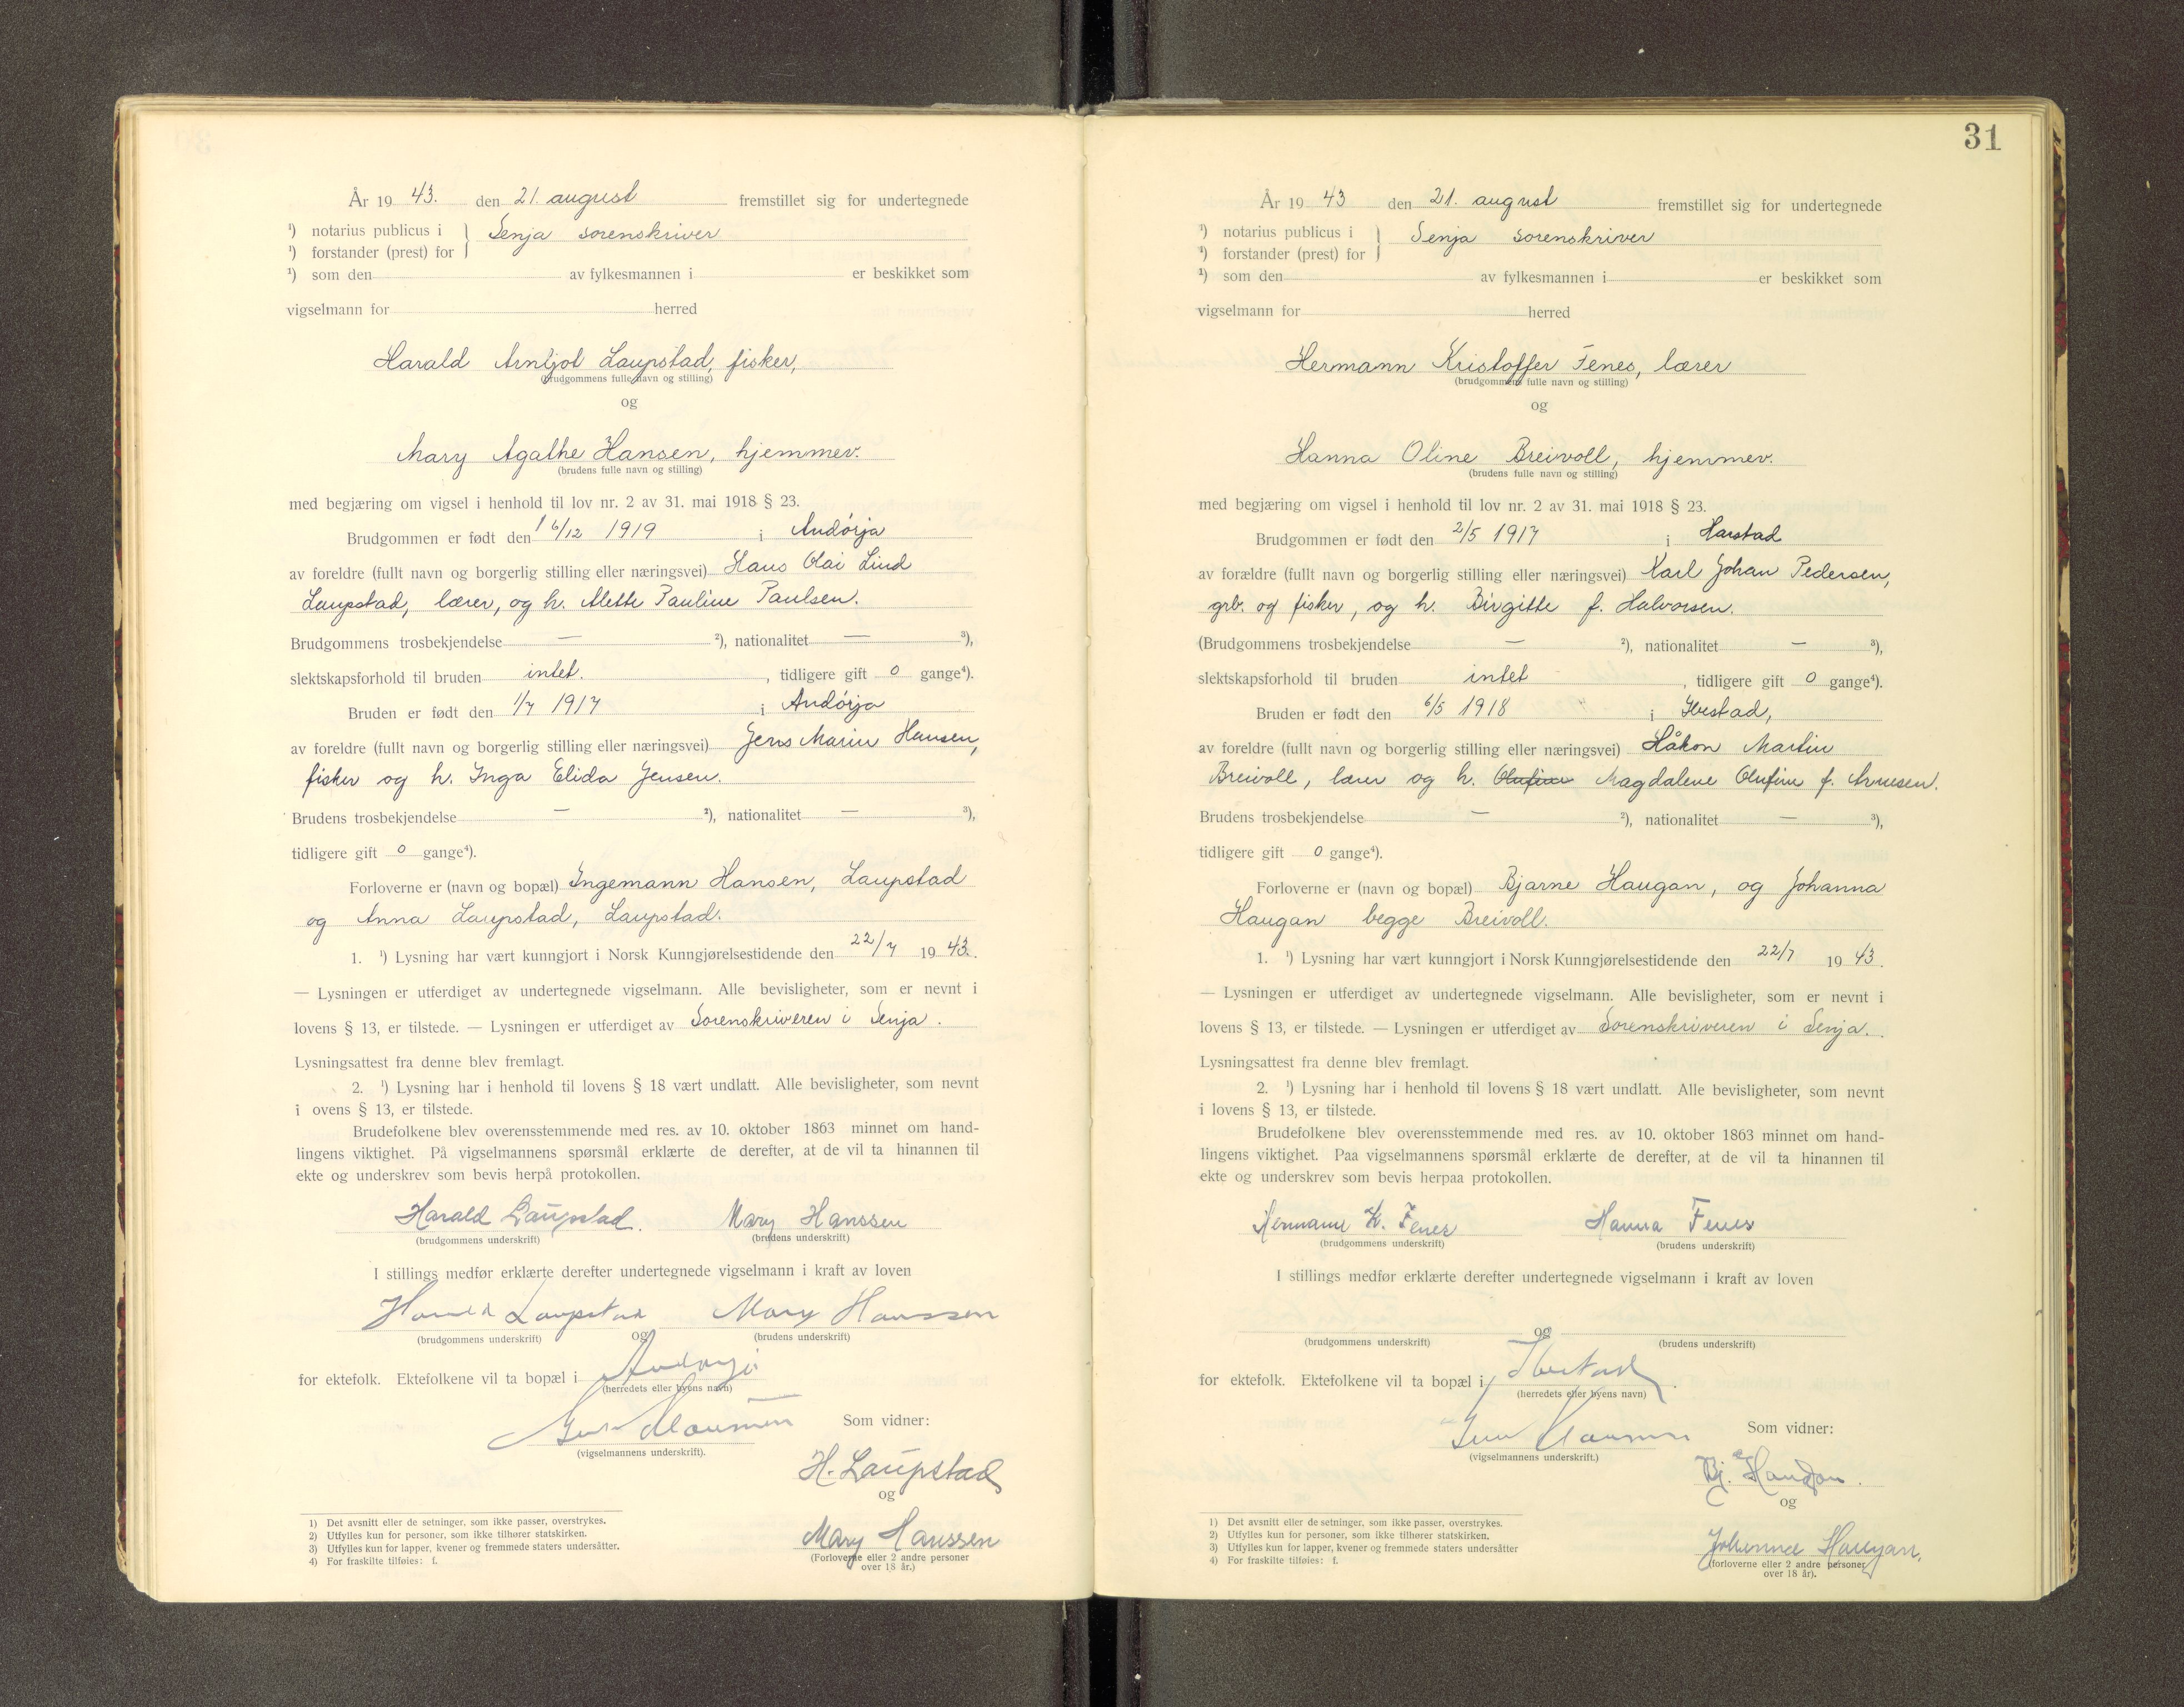 År 19 43. den 21. august fremstillet sig for undertegnede
¹) notarius publicus i } Senja sorenskriver
¹) forstander (prest) for
¹) som den av fylkesmannen i er beskikket som
vigselmann for herred
Harald Arntjot Laupstad, fisker,
(brudgommens fulle navn og stilling)
og
Mary Agathe Hansen, hjemmev.
(brudens fulle navn og stilling)
med begjæring om vigsel i henhold til lov nr. 2 av 31. mai 1918 § 23.
Brudgommen er født den 16/12 1919 i Andørja
av foreldre (fullt navn og borgerlig stilling eller næringsvei) Hans Olai Lind
Laupstad, lærer, og h. Alette Pauline Paulsen.
Brudgommens trosbekjendelse — ²), nationalitet — ³),
slektskapsforhold til bruden intet. , tidligere gift 0 gange⁴).
Bruden er født den 1/7 1917 i Andørja
av foreldre (fullt navn og borgerlig stilling eller næringsvei) Jens Marin Hansen,
fisker og h. Inga Elida Jensen.
Brudens trosbekjendelse — ²), nationalitet — ³),
tidligere gift 0 gange⁴).
Forloverne er (navn og bopæl) Ingemann Hansen, Laupstad
og Anna Laupstad, Laupstad.
1. ¹) Lysning har vært kunngjort i Norsk Kunngjørelsestidende den 22/7 19 43.
— Lysningen er utferdiget av undertegnede vigselmann. Alle bevisligheter, som er nevnt i
lovens § 13, er tilstede. — Lysningen er utferdiget av Sorenskriveren i Senja.
Lysningsattest fra denne blev fremlagt.
2. ¹) Lysning har i henhold til lovens § 18 vært undlatt. Alle bevisligheter, som nevnt
i ovens § 13, er tilstede.
Brudefolkene blev overensstemmende med res. av 10. oktober 1863 minnet om hand-
lingens viktighet. På vigselmannens spørsmål erklærte de derefter, at de vil ta hinannen til
ekte og underskrev som bevis herpå protokollen.
Harald Laupstad. Mary Hanssen
(brudgommens underskrift) (brudens underskrift)
I stillings medfør erklærte derefter undertegnede vigselmann i kraft av loven
Harald Laupstad og Mary Hanssen
(brudgommens underskrift) (brudens underskrift)
for ektefolk. Ektefolkene vil ta bopæl i Andørja
(herredets eller byens navn)
Som vidner:
(vigselmannens underskrift).
H. Laupstad
og
Mary Hanssen
(Forloverne eller 2 andre personer
over 18 år.)
1) Det avsnitt eller de setninger, som ikke passer, overstrykes.
2) Utfylles kun for personer, som ikke tilhører statskirken.
3) Utfylles kun for lapper, kvener og fremmede staters undersåtter.
4) For fraskilte tilføies: f.
31
År 19 43 den 21. august fremstillet sig for undertegnede
¹) notarius publicus i } Senja sorenskriver
¹) forstander (prest) for
¹) som den av fylkesmannen i er beskikket som
vigselmann for herred
Hermann Kristoffer Fenes, lærer
(brudgommens fulle navn og stilling)
og
Hanna Oline Breivoll, hjemmev.
(brudens fulle navn og stilling)
med begjæring om vigsel i henhold til lov nr. 2 av 31. mai 1918 § 23.
Brudgommen er født den 2/5 1917 i Harstad
av forældre (fullt navn og borgerlig stilling eller næringsvei) Karl Johan Pedersen,
grb. og fisker, og h. Birgitte f. Halvorsen.
(Brudgommens trosbekjendelse — ²), nationalitet — ³),
slektskapsforhold til bruden intet , tidligere gift 0 gange⁴).
Bruden er født den 6/5 1918 i Ibestad,
av foreldre (fullt navn og borgerlig stilling eller næringsvei) Håkon Martin
Breivoll, lærer og h. Olufine Magdalene Olufine f. Arnesen.
Brudens trosbekjendelse — ²), nationalitet — ³),
tidligere gift 0 gange⁴).
Forloverne er (navn og bopæl) Bjarne Haugan, og Johanna
Haugan begge Breivoll.
1. ¹) Lysning har vært kunngjort i Norsk Kunngjørelsestidende den 22/7 19 43.
— Lysningen er utferdiget av undertegnede vigselmann. Alle bevisligheter, som er nevnt i
lovens § 13, er tilstede. — Lysningen er utferdiget av Sorenskriveren i Senja.
Lysningsattest fra denne blev fremlagt.
2. ¹) Lysning har i henhold til lovens § 18 vært undlatt. Alle bevisligheter, som nevnt
i lovens § 13, er tilstede.
Brudefolkene blev overensstemmende med res. av 10. oktober 1863 minnet om hand-
lingens viktighet. Paa vigselmannens spørsmål erklærte de derefter, at de vil ta hinannen til
ekte og underskrev som bevis herpaa protokollen.
Hermann K. Fenes Hanna Fenes
(brudgommens underskrift) (brudens underskrift)
I stillings medfør erklærte derefter undertegnede vigselmann i kraft av loven
og
(brudgommens underskrift) (brudens underskrift)
for ektefolk. Ektefolkene vil ta bopæl i Ibestad
(herredets eller byens navn)
Som vidner:
(vigselmannens underskrift.)
Bj. Haugan.
og
Johanna Haugan,
(forloverne eller 2 andre personer
over 18 år).
1) Det avsnitt eller de setninger, som ikke passer, overstrykes.
2) Utfylles kun for personer, som ikke tilhører statskirken.
3) Utfylles kun for lapper, kvener og fremmede staters undersåtter
4) For fraskilte tilføies: f.